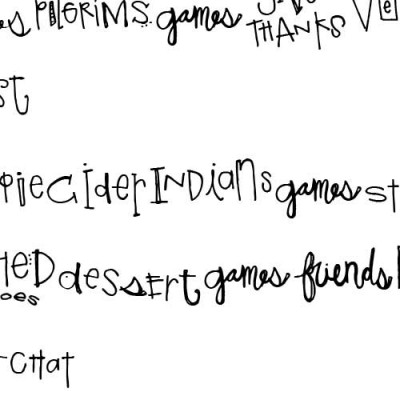 PILGRIMS games THANKS
st
PiE CiDer INDiaNs games st
dessert games friends
oes
CHat